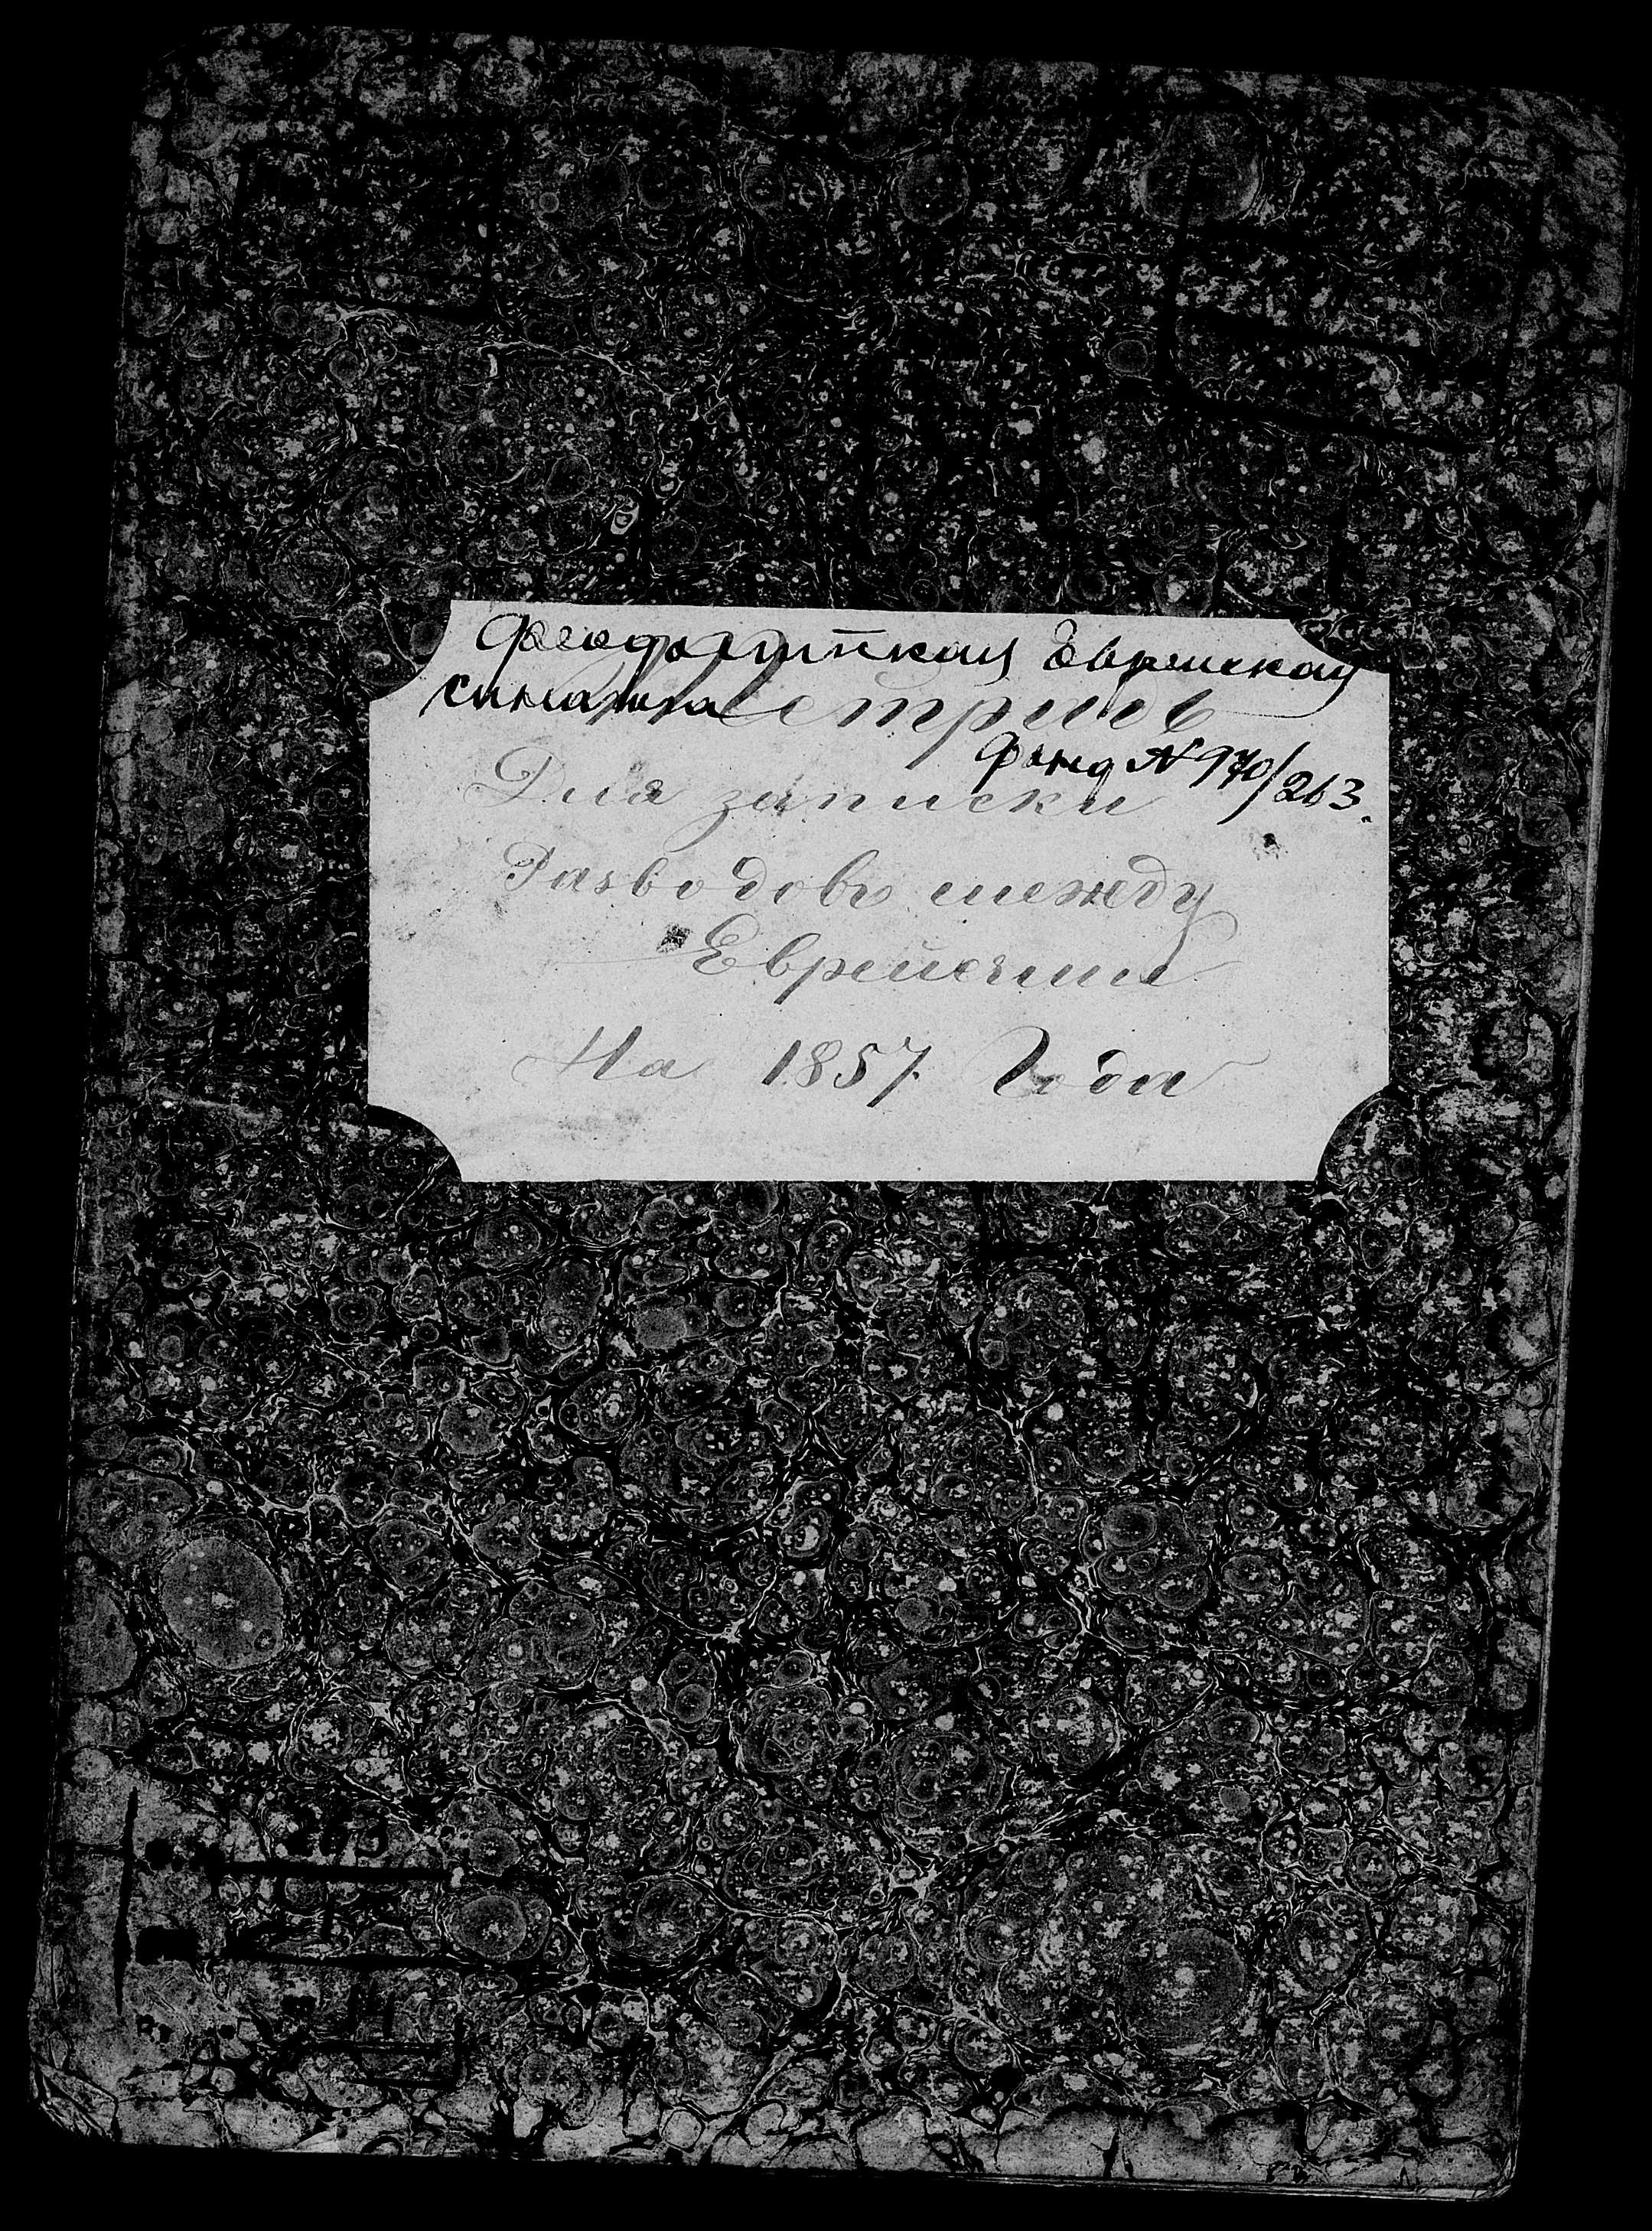 Феодосийская Еврейская
синагога
Метрика
Фонд № 970/263.
Для записки
Разводовъ между
Евреями
На 1857 Годъ
263
1
14